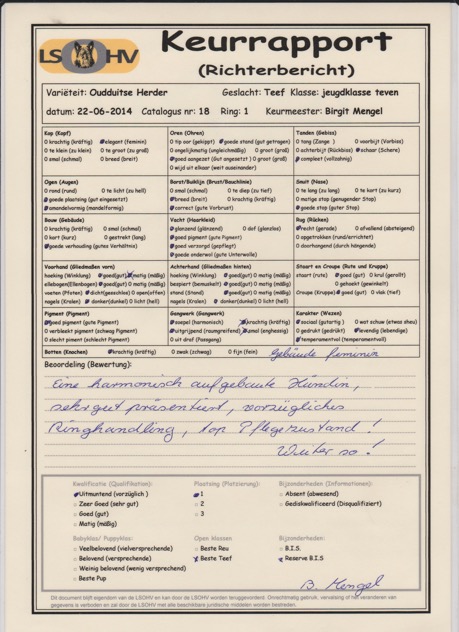 LSOHV
Keurrapport
(Richterbericht)
Variëteit: Oudduitse Herder Geslacht: Teef Klasse: jeugdklasse teven
datum: 22-06-2014 Catalogus nr: 18 Ring: 1 Keurmeester: Birgit Mengel
Kop (Kopf)
krachtig (kräftig) elegant (feminin)
te klein (zu klein) te groot (zu groß)
smal (schmal) breed (breit)
Oren (Ohren)
tip oor (gekippt) goede stand (gut getragen)
ongelijkmatig (ungleichmäßig) groot (groß)
goed aangezet (Gut angesetzt) groot (groß)
wijd uit elkaar (weit auseinander)
Tanden (Gebiss)
tang (Zange) voorbijt (Vorbiss)
achterbijt (Rückbiss) schaar (Schere)
compleet (vollzahnig)
Ogen (Augen)
rond (rund) te licht (zu hell)
goede plaatsing (gut eingesetzt)
amandelvormig (mandelformig)
Borst/Buiklijn (Brust/Bauchlinie)
smal (schmal) te diep (zu tief)
breed (breit) krachtig (kräftig)
correct (gute Vorbrust)
Snuit (Nase)
te lang (zu lang) te kort (zu kurz)
matige stop (genugender Stop)
goede stop (guter Stop)
Bouw (Gebäude)
krachtig (kräftig) smal (schmal)
kort (kurz) gestrekt (lang)
goede verhouding (gutes Verhältnis)
Vacht (Haarkleid)
glanzend (glänzend) dof (glanzlos)
goed pigment (gute Pigment)
goed verzorgd (gepflegt)
goede onderwol (gute Unterwolle)
Rug (Rücken)
recht (gerade) afvallend (absteigend)
opgetrokken (rund/errichtet)
doorhangend (durch hängende)
Voorhand (Gliedmaßen vorn)
hoeking (Winklung) goed(gut) matig (mäßig)
ellebogen(Ellenbogen) goed(gut) matig (mäßig)
voeten (Pfoten) dicht(geschloßen) open(offen)
nagels (Kralen) donker(dunkel) licht (hell)
Achterhand (Gliedmaßen hinten)
hoeking (Winklung) goed(gut) matig (mäßig)
bespiert (bemuskelt) goed(gut) matig (mäßig)
stand (Stand) goed(gut) matig (mäßig)
nagels (Kralen) donker(dunkel) licht (hell)
Staart en Croupe (Rute und Kruppe)
staart (Rute) goed (gut) krul (gerollt)
gehoekt (gewinkelt)
Croupe (Kruppe) goed (gut) vlak (tief)
Pigment (Pigment)
goed pigment (gute Pigment)
verbleekt pigment (schwag Pigment)
slecht piment (schlecht Pigment)
Gangwerk (Gangwerk)
soepel (harmonisch) krachtig (kräftig)
uitgrijpend (raumgreifend) smal (enghessig)
uit draf (Passgang)
Karakter (Wezen)
sociaal (gutartig) wat schuw (etwas sheu)
gedrukt (gedrükt) levendig (lebendige)
temperamentvol (temperamentvoll)
Botten (Knochen) krachtig (kräftig) zwak (schwag) fijn (fein) Gebäude feminin
Beoordeling (Bewertung):
Eine harmonisch aufgebaute Hündin,
sehr gut präsentiert, vorzügliches
Ringhandling, top Pflegezustand!
Weiter so!
Kwalificatie (Qualifikation): Plaatsing (Platzierung): Bijzonderheden (Informationen):
Uitmuntend (vorzüglich) 1 Absent (abwesend)
Zeer Goed (sehr gut) 2 Gediskwalificeerd (Disqualifiziert)
Goed (gut) 3
Matig (mäßig)
Babyklas/ Puppyklas: Open klassen Bijzonderheden:
Veelbelovend (vielversprechende) Beste Reu B.I.S.
Belovend (versprechende) Beste Teef Reserve B.I.S
Weinig belovend (wenig versprechend)
Beste Pup
B. Mengel
Dit document blijft eigendom van de LSOHV en kan door de LSOHV worden teruggevorderd. Onrechtmatig gebruik, vervalsing of het veranderen van
gegevens is verboden en zal door de LSOHV met alle beschikbare juridische middelen worden bestreden.